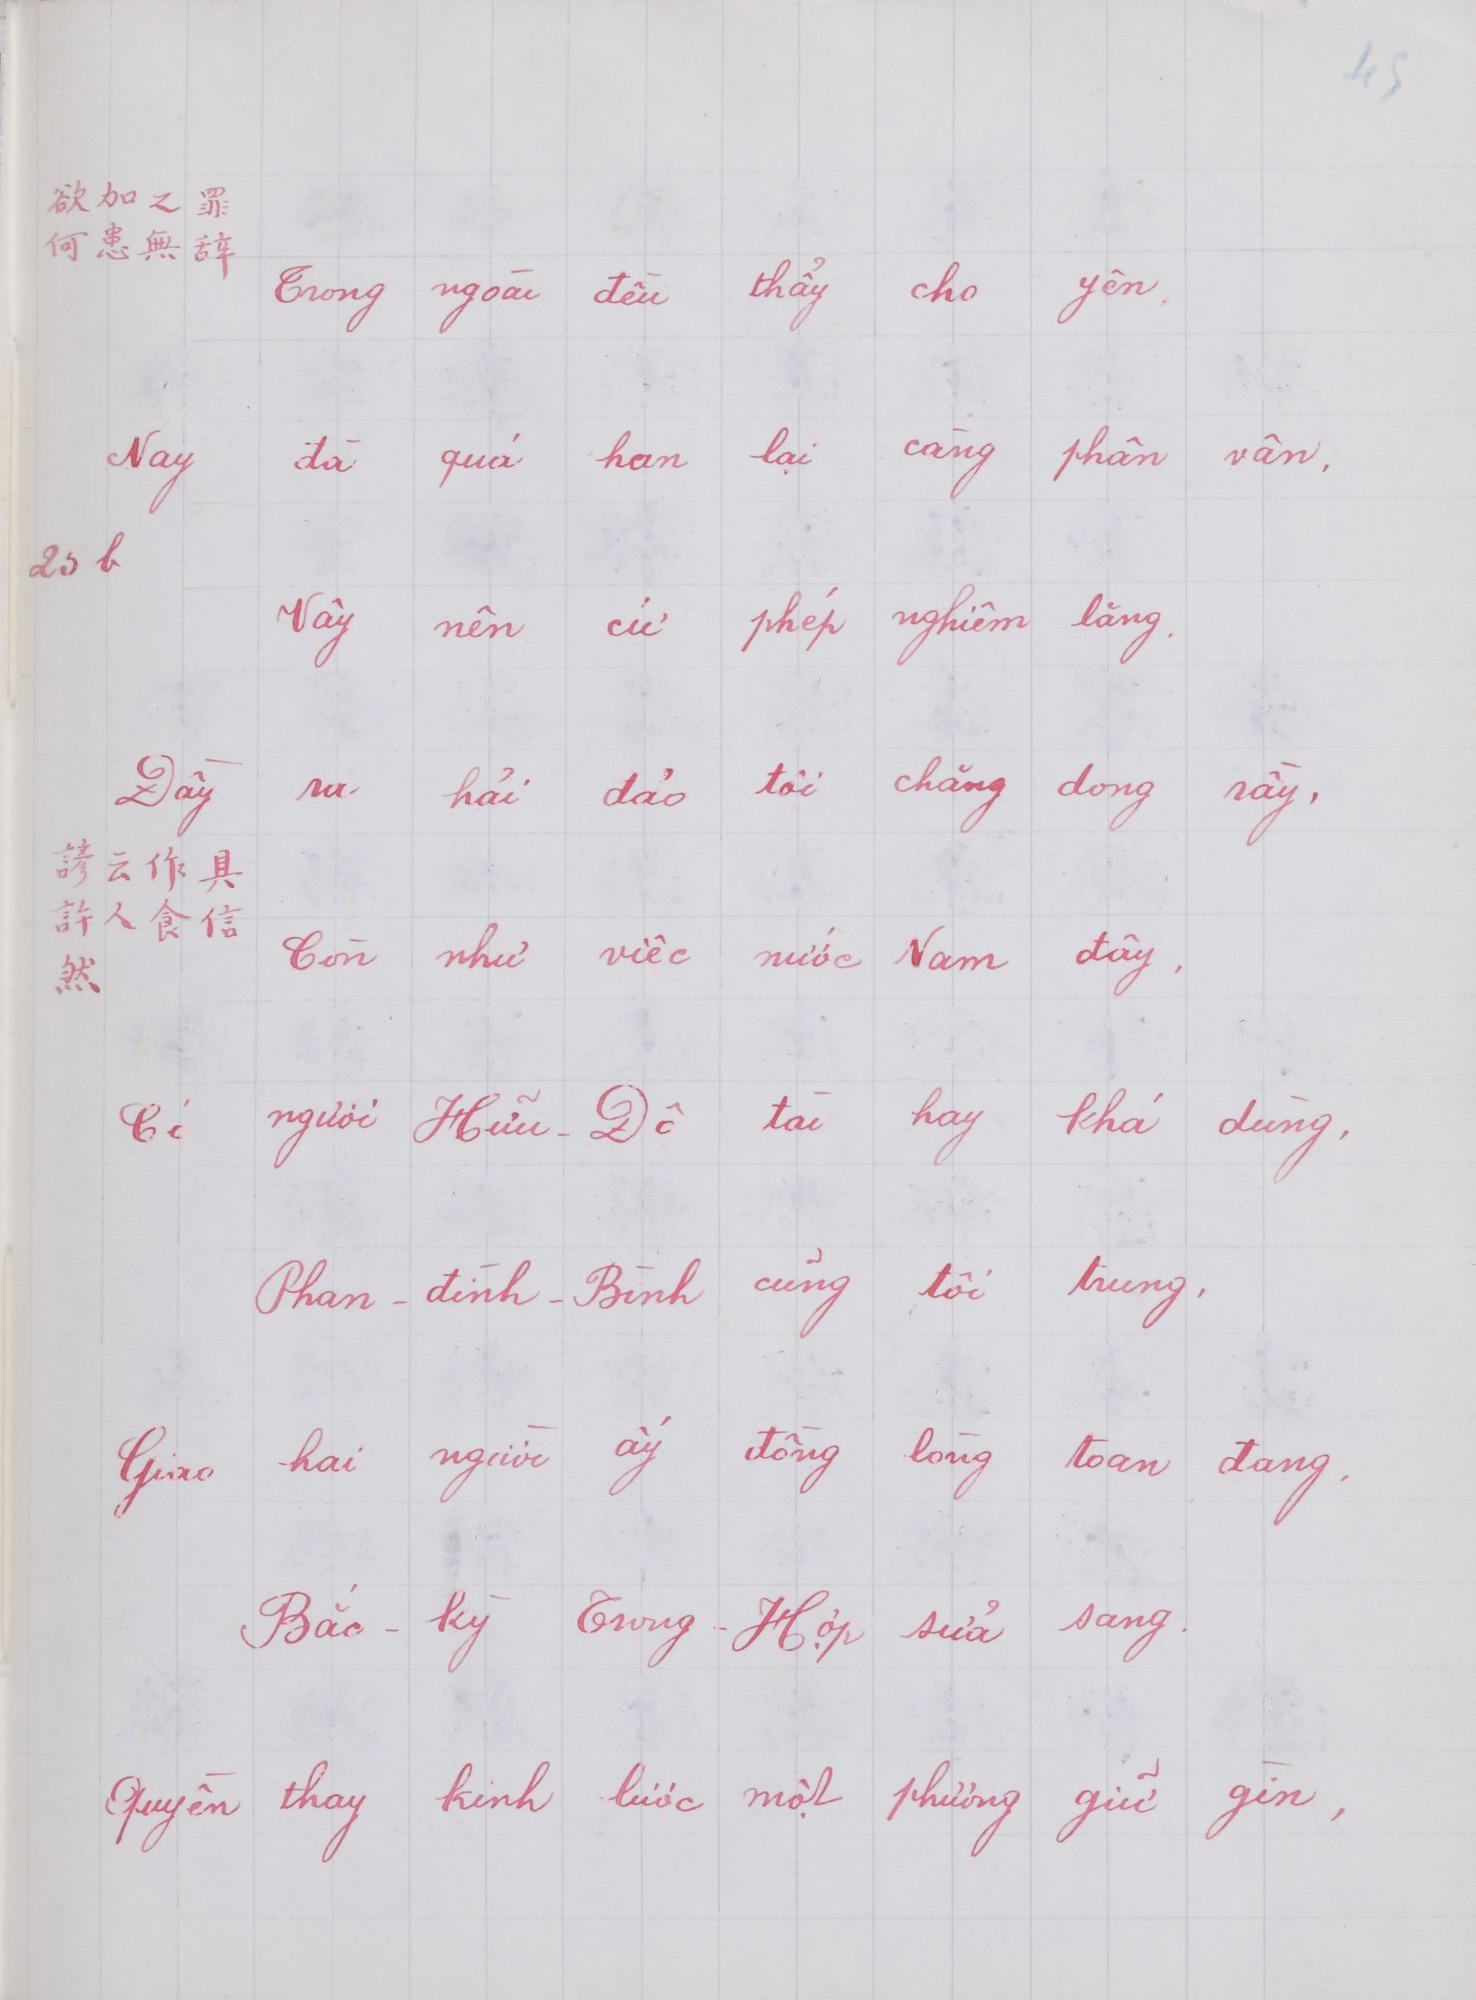 45
欲加之罪
何患無辞
Trong ngoài đều thẩy cho yên.
Nay đã quá hạn lại càng phân vân,
25 b
Vậy nên cứ phép nghiêm lăng.
Đầy ra hải đảo tôi chăng dong rầy,
諺云作具
許人食信
然
Còn như việc nước Nam đây,
Có người Hữu-Độ tài hay khá dùng,
Phan-đình-Bình cũng tôi trung,
Giao hai người ấy đồng lòng toan đang.
Bắc-kỳ Trọng-Hợp sửa sang.
Quyền thay kinh lược một phương giữ gìn,